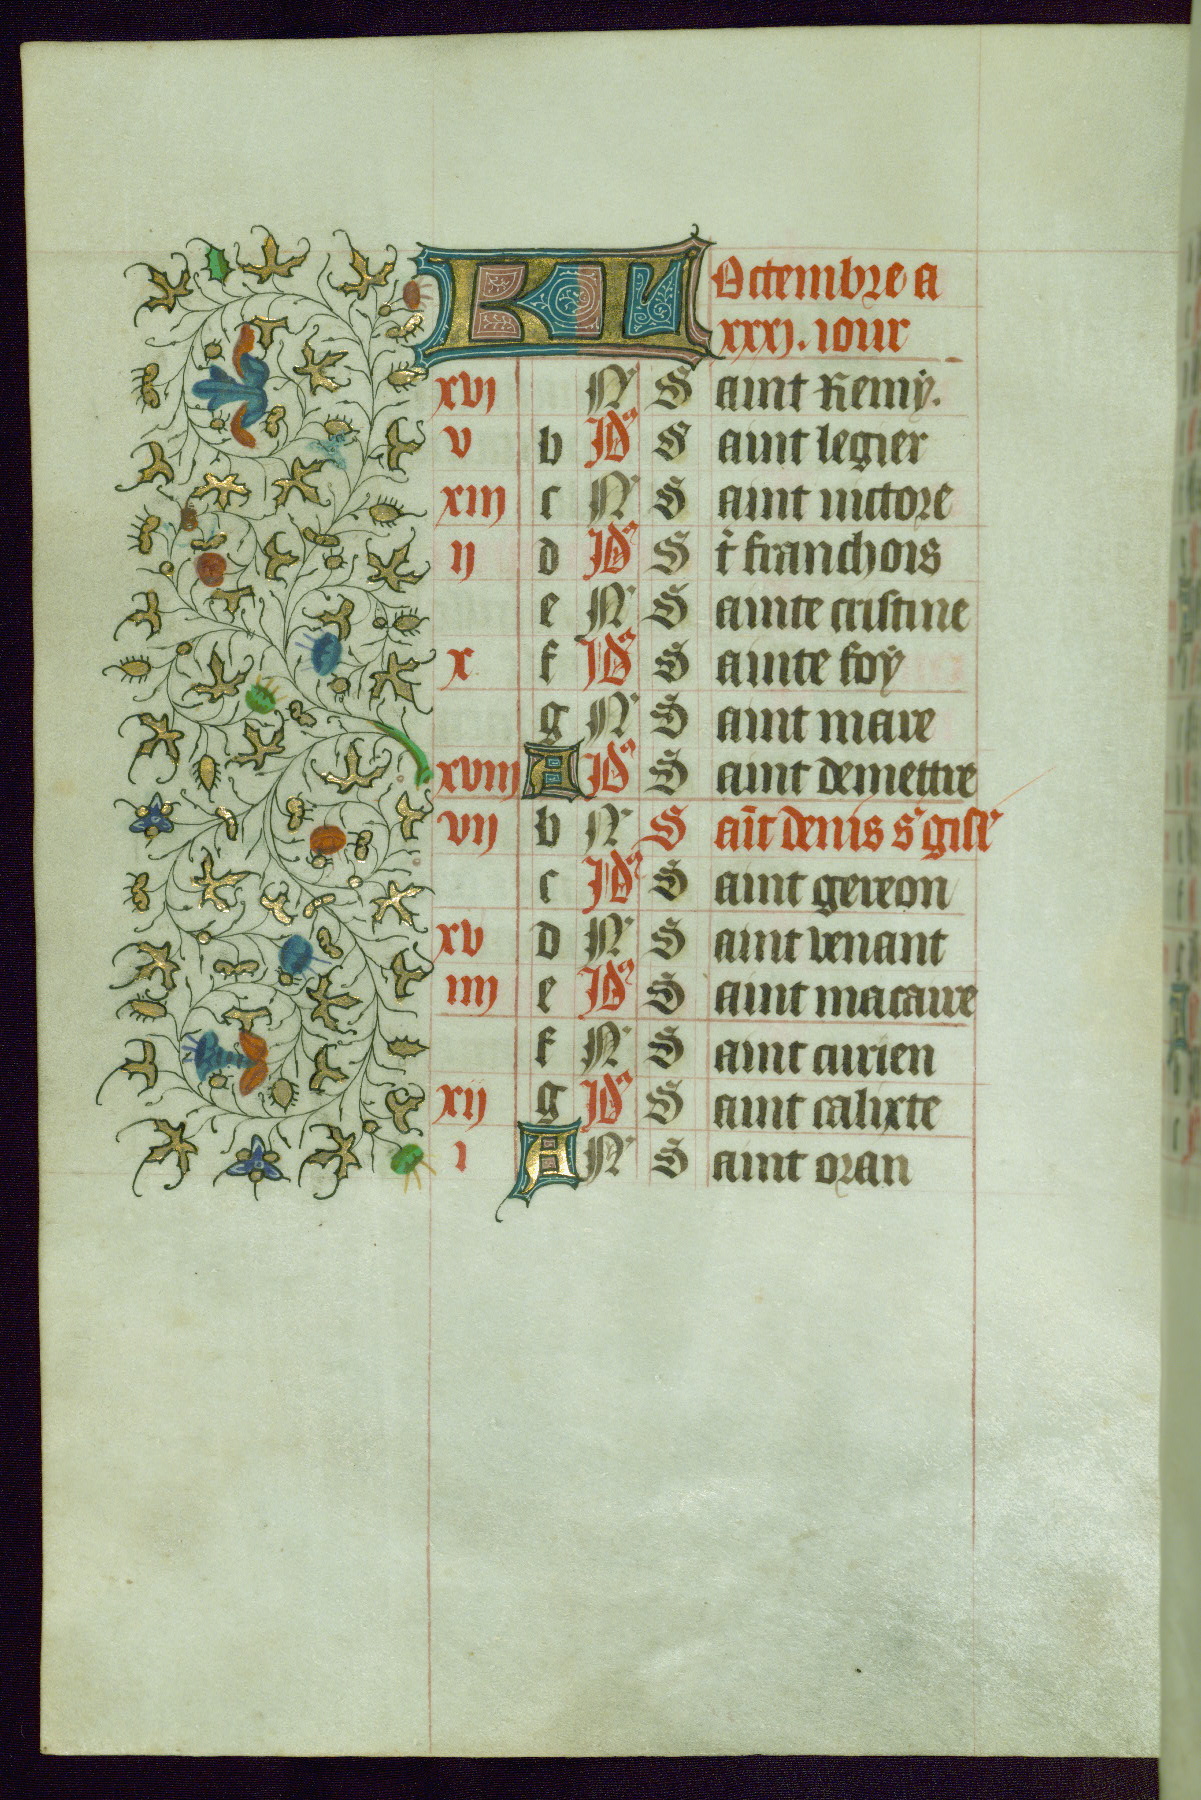 KL Octembre a
xxxj. iour
xvj N S aint Remy.
v b Jd S aint legier
xiij c N S aint victore
ij d Jd S t franchois
e N S ainte cristine
x f Jd S ainte foy
g N S aint marc
xviij A Jd S aint demettre
vij b N S aīt denis s gisl'
c Jd S aint gereon
xv d N S aint venant
iiij e Jd S aint macaire
f N S aint curien
xij g Jd S aint calixte
i A N S aint oran